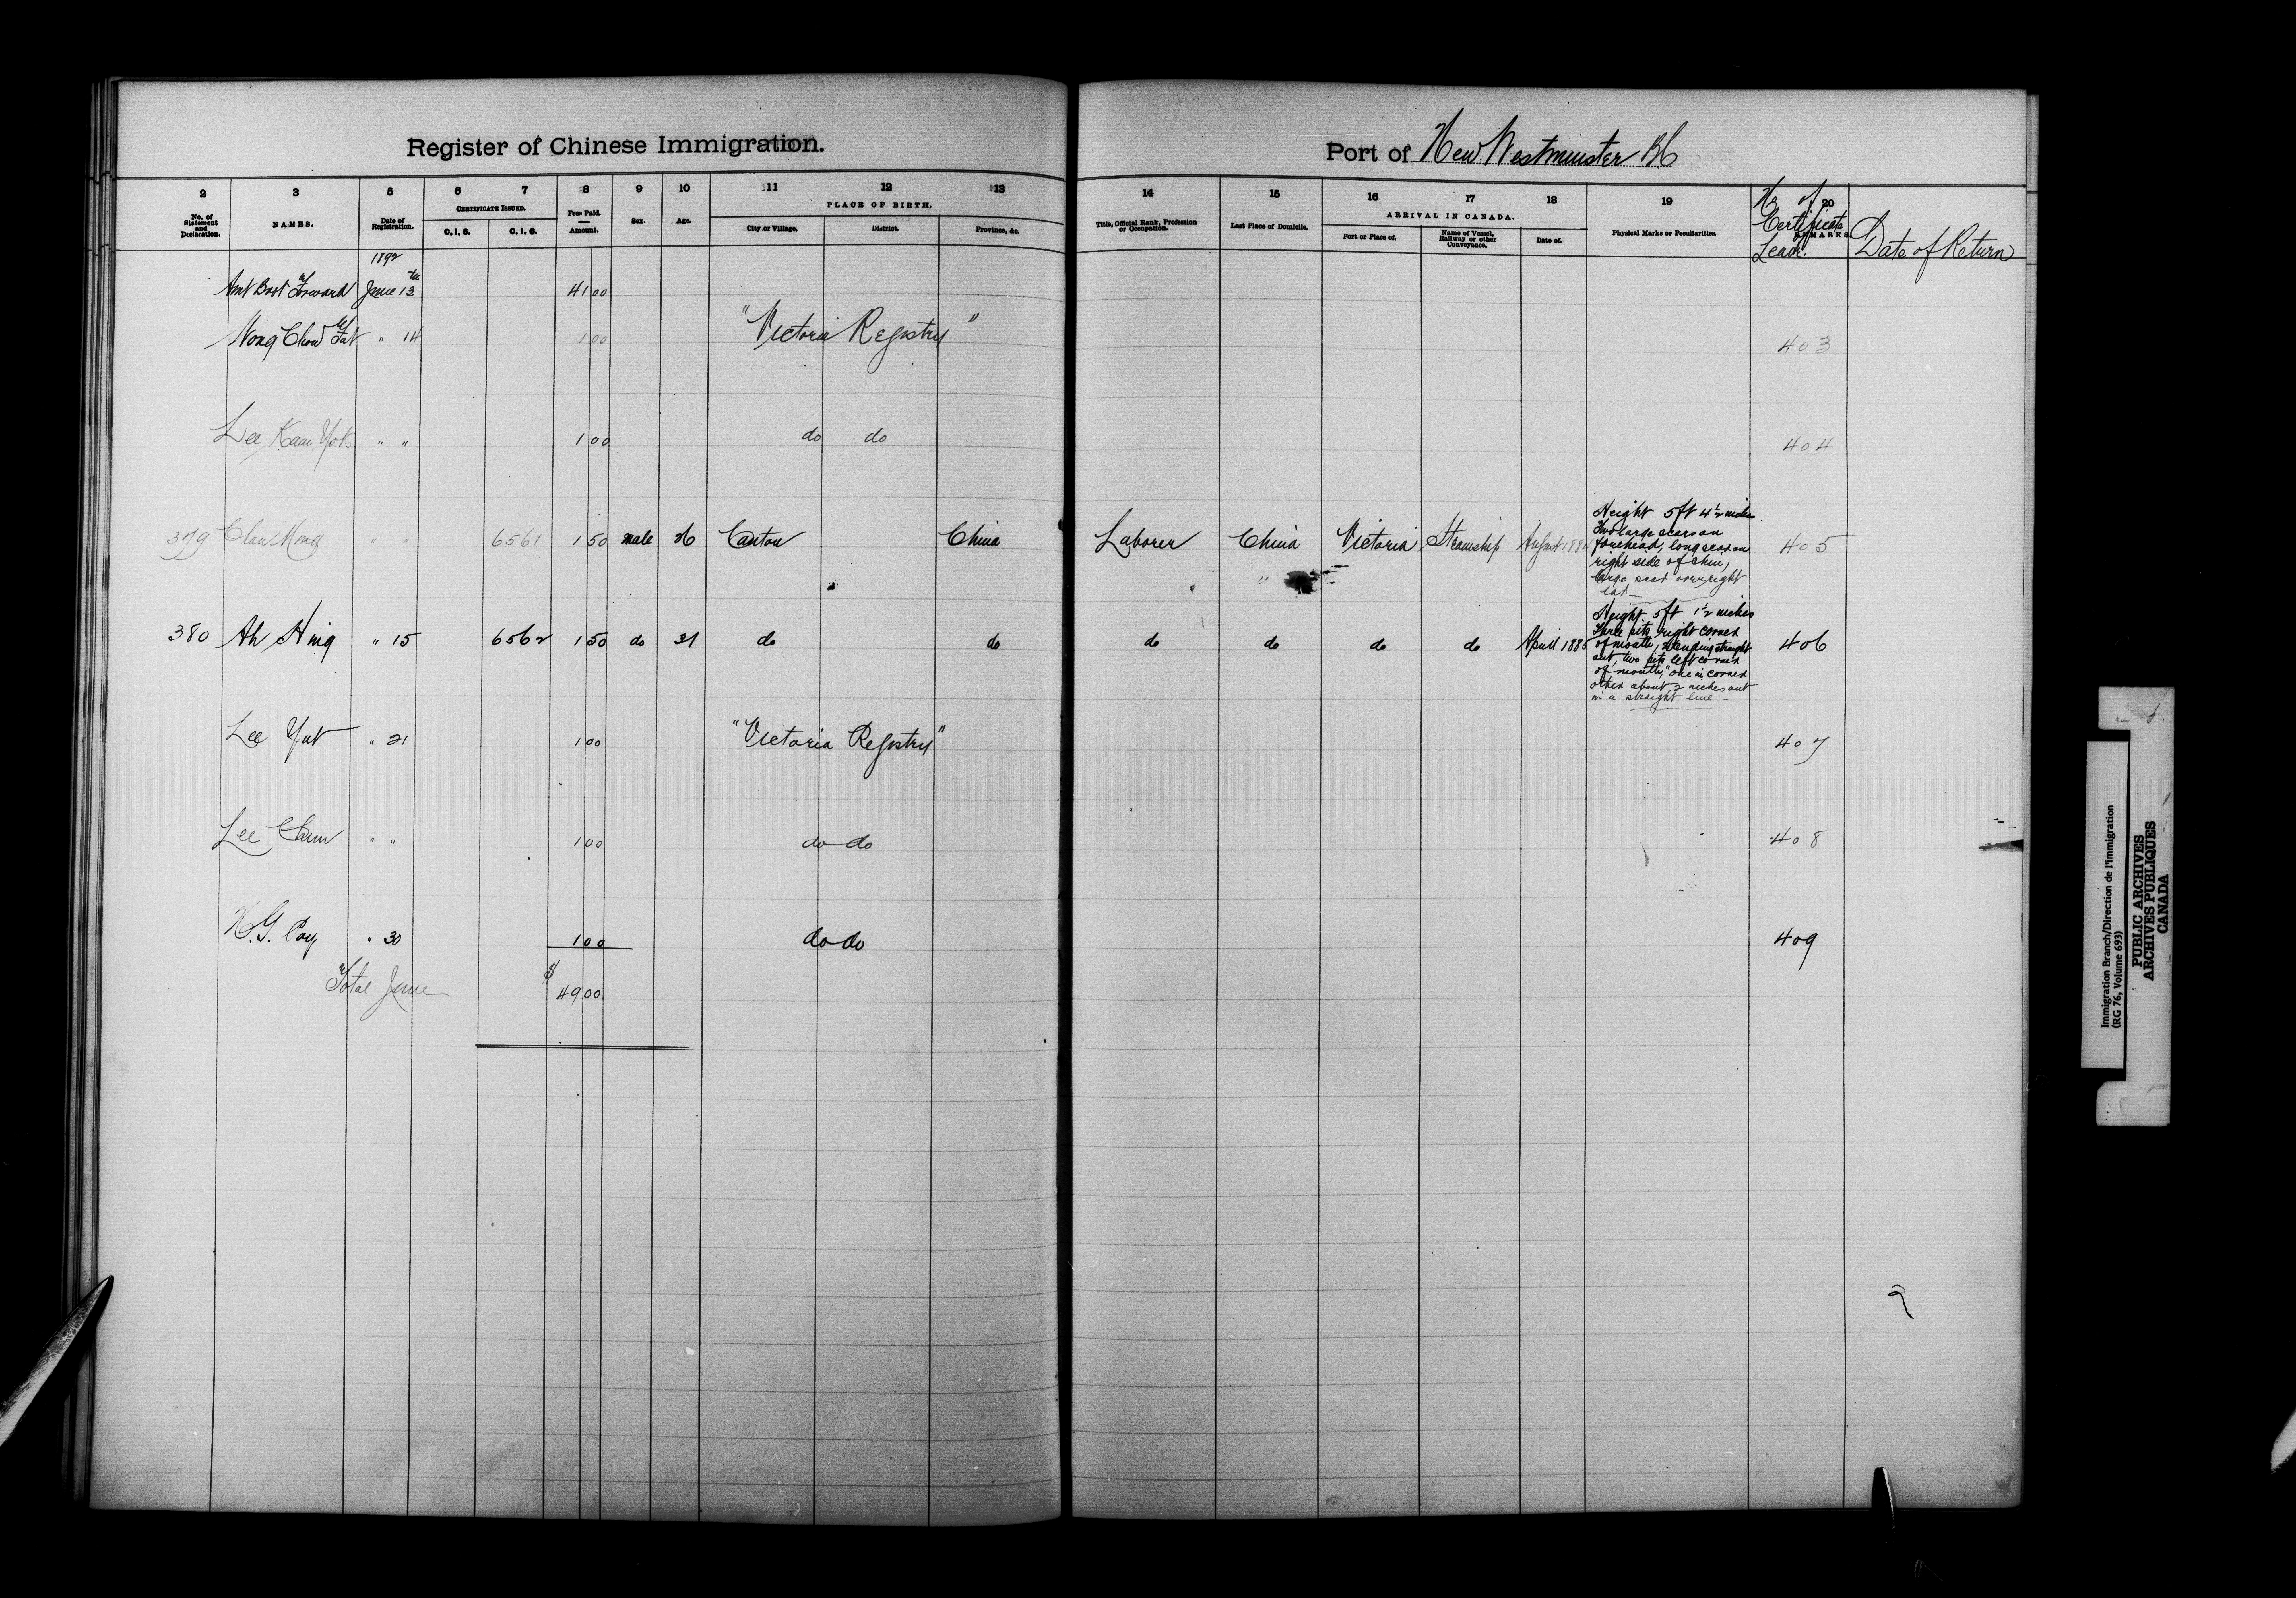 Register of Chinese Immigration.
Port of New Westminster BC
2 3 5 6 7 8 9 10 11 12 13 14 15 16 17 18 19 20
No. of Statement and Declaration.
NAMES.
Date of Registration.
CERTIFICATE ISSUED.
C. I. 5. C. I. 6.
Fees Paid.
Amount.
Sex.
Age.
PLACE OF BIRTH.
City or Village. District. Province, &c.
Title, Official Rank, Profession or Occupation.
Last Place of Domicile.
ARRIVAL IN CANADA.
Port or Place of. Name of Vessel, Railway or other Conveyance. Date of.
Physical Marks or Peculiarities.
REMARKS
No of Certificate Leave.
Date of Return
1892
Amt Bort Forward June 13th 41 00
Wong Chow Fat " 14 1 00 "Victoria Registry" 403
Lee Kam Yok " " 1 00 do do 404
379 Chau Ming " " 6561 1 50 male Canton China Laborer China Victoria Steamship August 405
Height 5ft 4½ inches
Two large scars on
forehead, long scar on
right side of chin,
large scar over right
ear
380 Ah Hing " 15 6562 1 50 do 31 do do do do do do April 1885 406
Height 5ft 1½ inches
Three pits right corner
of mouth, standing straight
out, two pits left corner
of mouth, one in corner
other about 2 inches out
in a straight line
Lee Yat " 21 1 00 "Victoria Registry" 407
Lee " " 1 00 do do 408
H.G. Poy " 30 1 00 do do 409
"Total June $ 49 00
Immigration Branch/Direction de l'immigration
(RG 76, Volume 693)
PUBLIC ARCHIVES
ARCHIVES PUBLIQUES
CANADA